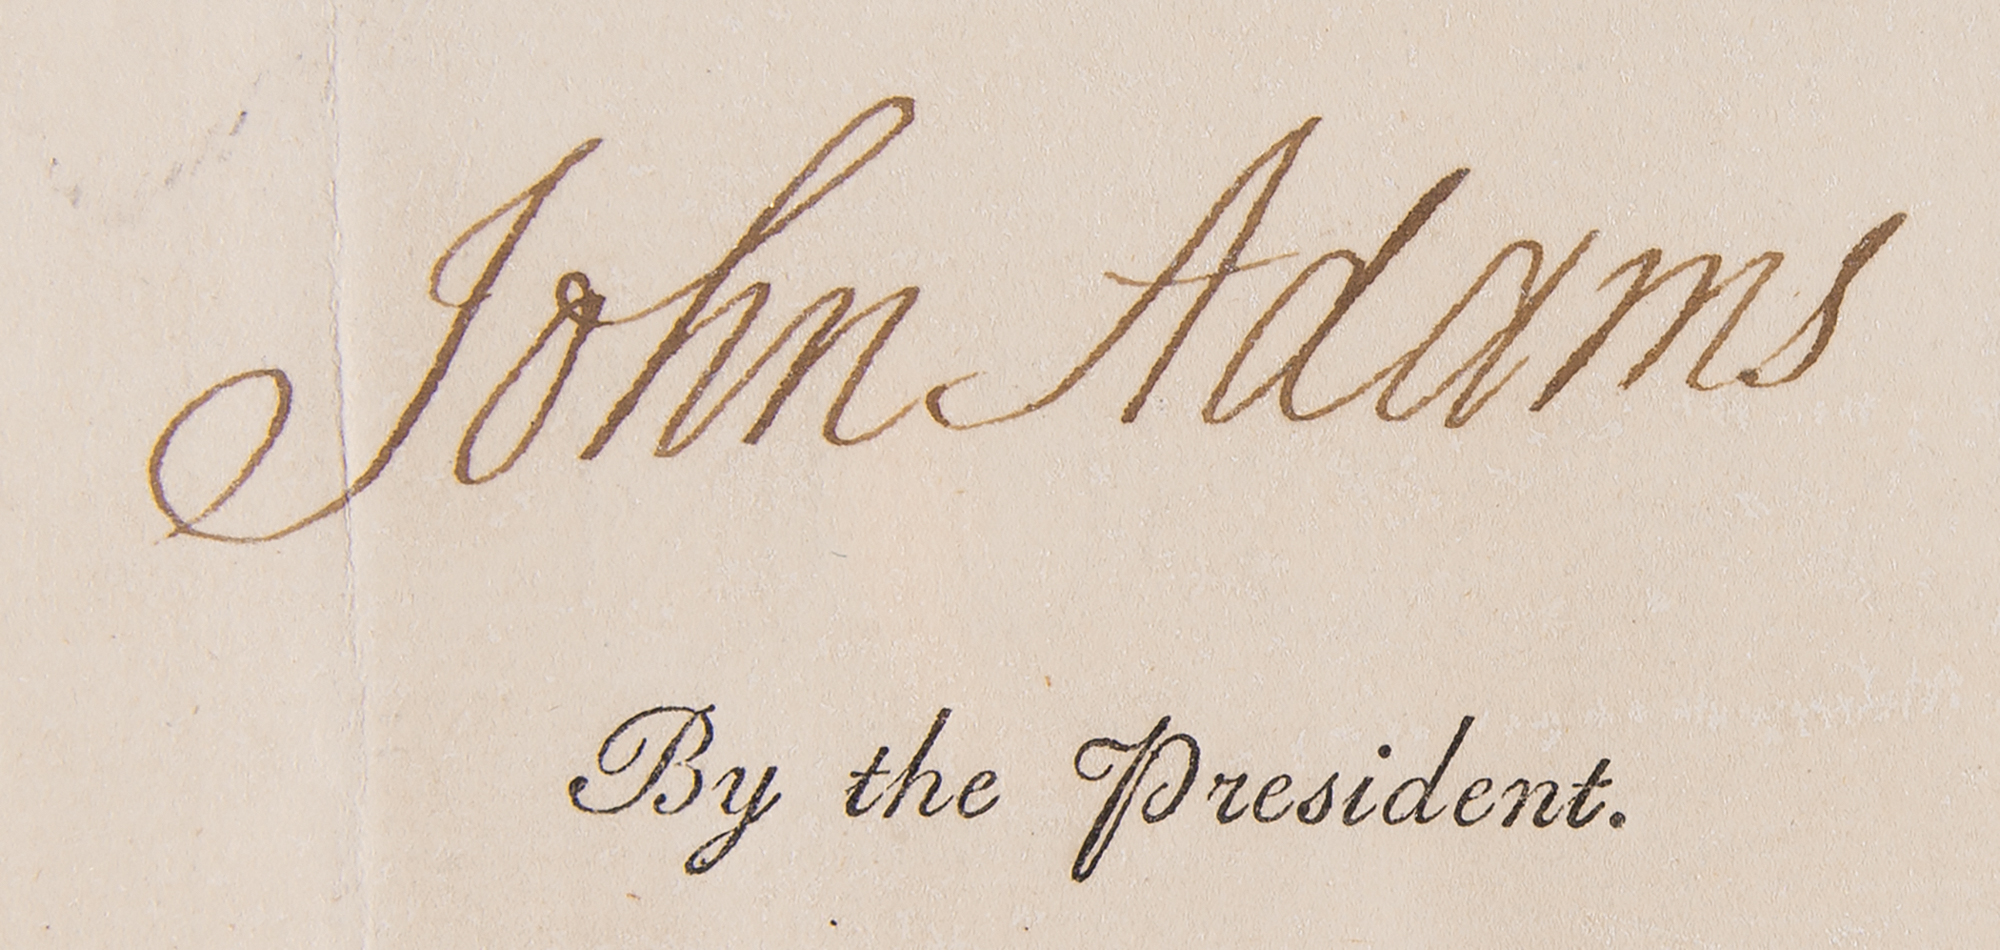 John Adams
By the President.